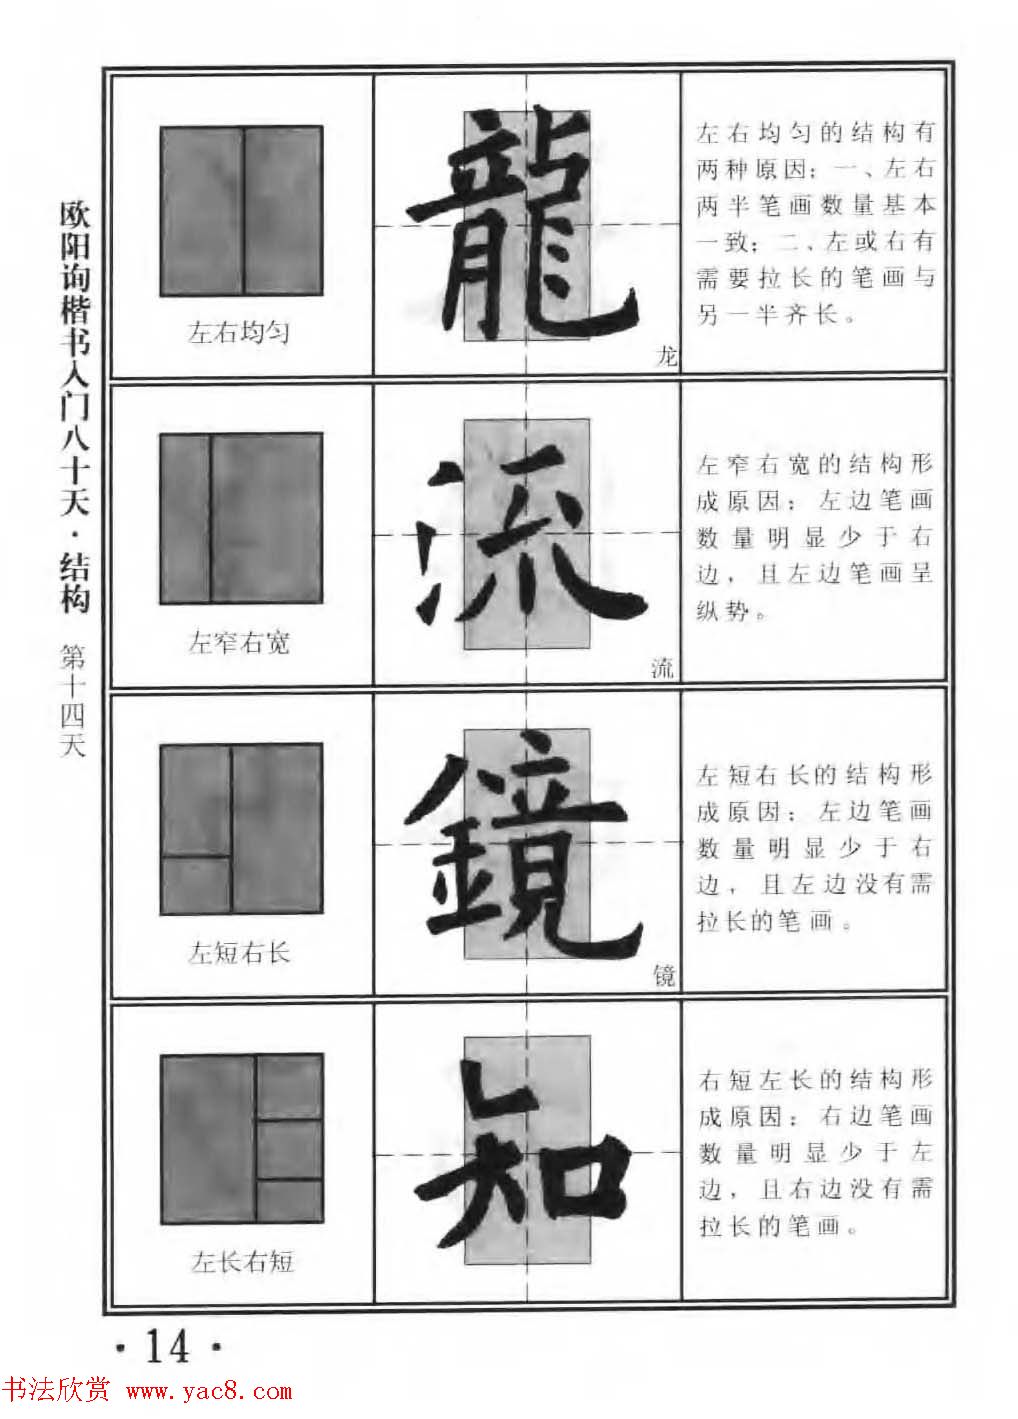 欧阳询楷书入门八十天·结构 第十四天
左右均匀
龍
龙
左右均匀的结构有
两种原因；一、左右
两半笔画数量基本
一致；二、左或右有
需要拉长的笔画与
另一半齐长。
左窄右宽
流
流
左窄右宽的结构形
成原因：左边笔画
数量明显少于右
边，且左边笔画呈
纵势。
左短右长
鏡
镜
左短右长的结构形
成原因：左边笔画
数量明显少于右
边，且左边没有需
拉长的笔画。
左长右短
知
右短左长的结构形
成原因：右边笔画
数量明显少于左
边，且右边没有需
拉长的笔画。
·14·
书法欣赏 www.yac8.com